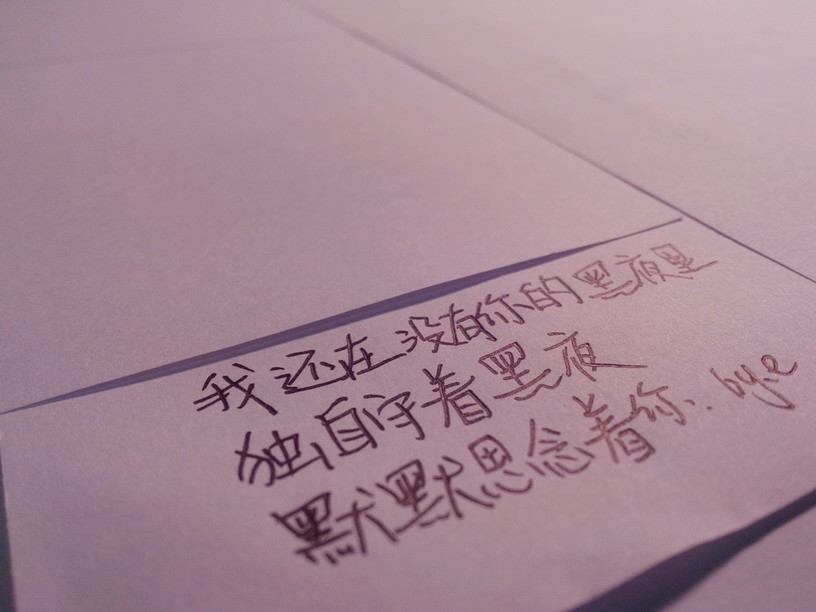 我还在没有你的黑夜里
独自守着黑夜
默默思念着你. bye